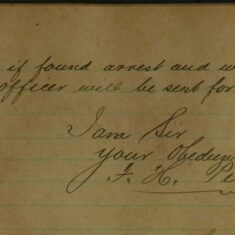 if found arrest and
officer will be sent for
I am Sir
your Obedien
F. H. Pe